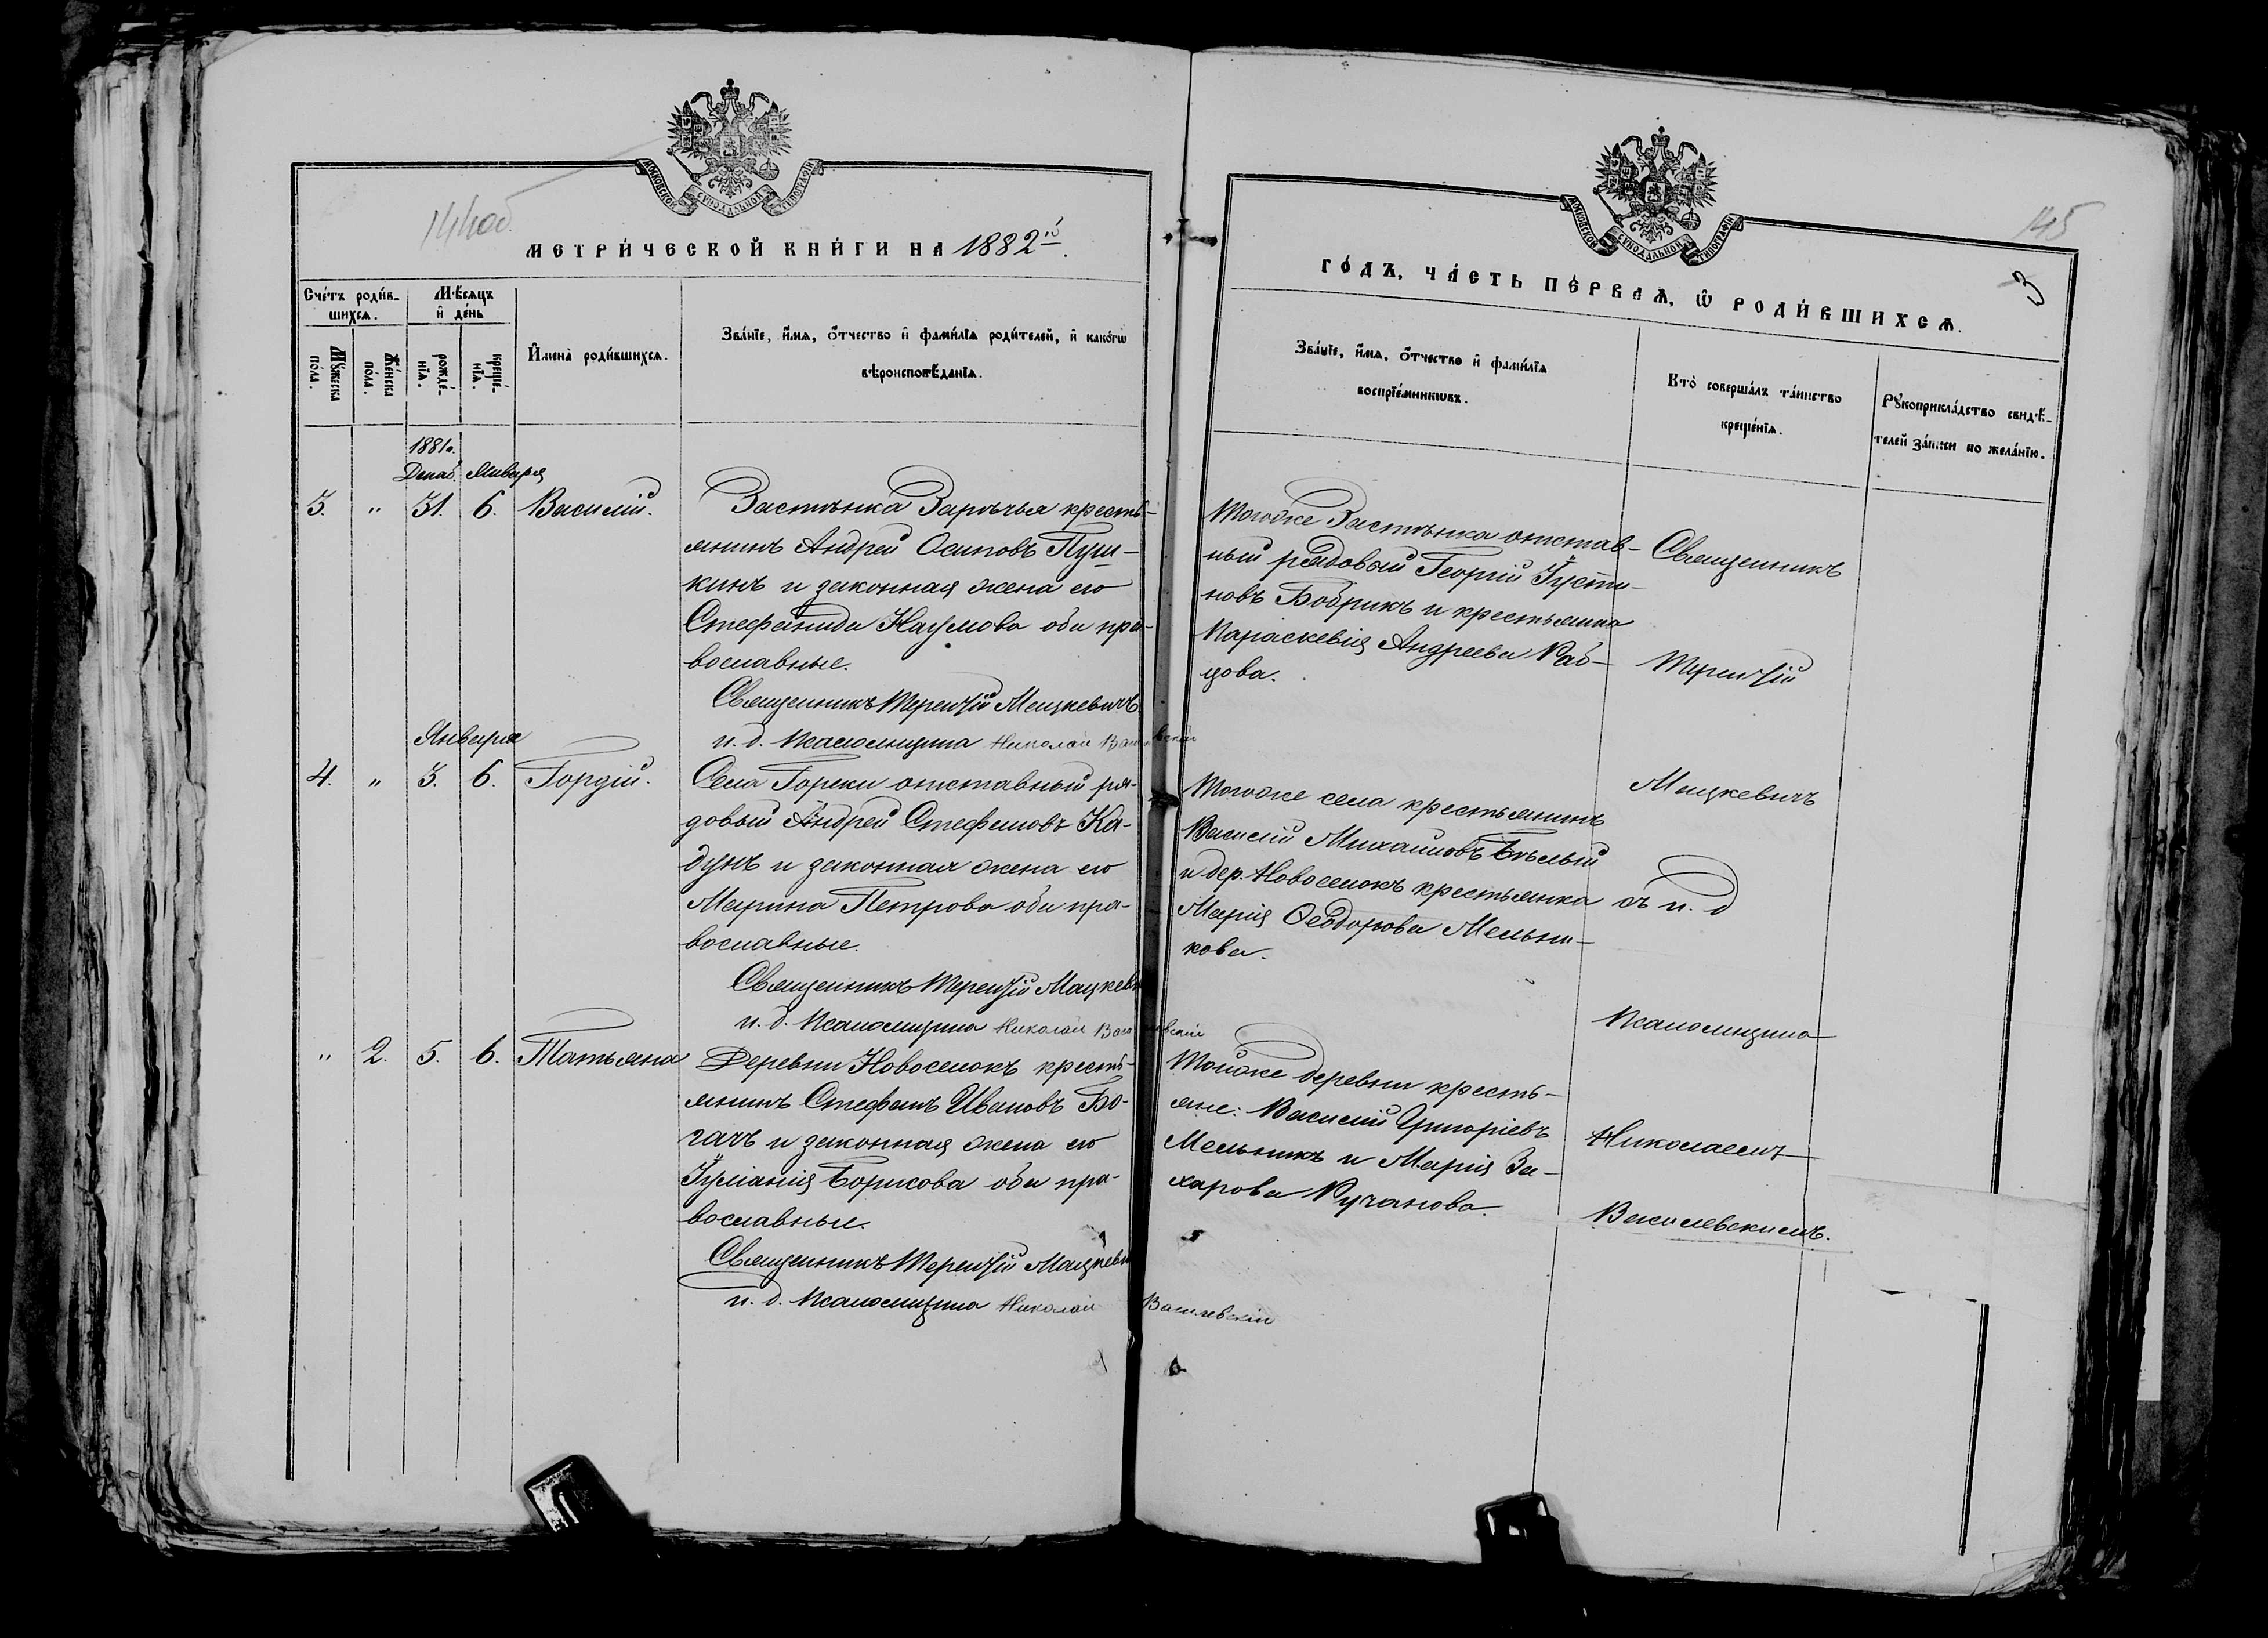 МОСКОВСКОЙ СѴНОДАЛЬНОЙ ТИПОГРАФІИ
144 об.
МЕТРИ́ЧЕСКОЙ КНИ́ГИ НА 1882й.
Сче́тъ роди́в-
шихсѧ.
Мѣ́сѧцъ
и҆ де́нь
Мꙋ́жеска
по́ла.
Же́нска
по́ла.
рожде́-
нїѧ.
креще́-
нїѧ.
И҆мена̀ роди́вшихсѧ.
Зва́нїе, и҆́мѧ, ѻ҆́тчество и҆ фами́лїѧ роди́телей, и҆ како́гѡ
вѣроисповѣ́данїѧ.
1881г.
Декаб. Января
3. " 31. 6. Василій.
Застѣнка Зарѣчья кресть-
янинъ Андрей Осиповъ Пуш-
кинъ и законная жена его
Стефанида Наумова оба пра-
вославные.
Священникъ Терентій Мацкевичъ
и. д. Псаломщика Николай Василевскій
Января
4. " 3. 6. Гордій.
Села Горки отставный ря-
довый Андрей Стефановъ Ка-
дунъ и законная жена его
Марина Петрова оба пра-
вославные.
Священникъ Терентій Мацкеви
и. д. Псаломщика Николай Василевскій
" 2. 5. 6. Татьяна
Деревни Новоселокъ кресть-
янинъ Стефанъ Ивановъ Бо-
гачъ и законная жена его
Іуліанія Борисова оба пра-
вославные.
Священникъ Терентій Мацкеви
и. д. Псаломщика Николай Василевскій
МОСКОВСКОЙ СѴНОДАЛЬНОЙ ТИПОГРАФІИ
145
3
ГО́ДЪ, ЧА́СТЬ ПЕ́РВАѦ, Ѡ҆ РОДИ́ВШИХСѦ.
Зва́нїе, и҆́мѧ, ѻ҆́тчество и҆ фами́лїѧ
воспрїе́мникѡвъ.
Кто̀ соверша́лъ та́инство
креще́нїѧ.
Рꙋкоприкла́дство свидѣ́-
телей за́писи по жела́нїю.
Тогоже Застѣнка отстав-
ный рядовый Георгій Іусти-
новъ Бобрикъ и крестьянка
Параскевія Андреева Раб-
цова.
Тогоже села крестьянинъ
Василій Михаиловъ Бѣлый
и дер. Новоселокъ крестьянка
Марія Ѳеодорова Мельни-
кова.
Тойже деревни кресть-
яне: Василій Григоріевъ
Мельникъ и Марія За-
харова Ручанова.
Священникъ
Терентій
Мацкевичъ
съ и. д
Псаломщика
Николаемъ
Василевскимъ.